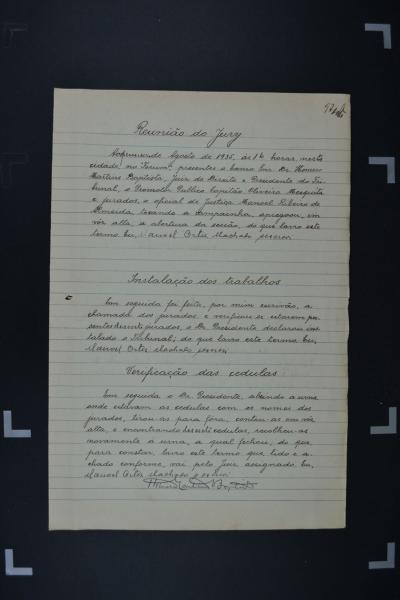 Reunião do Jury
de Agosto de 1935, ás 14 horas, nesta
cidade, no "Forum", presentes o benso Snr. Dr. Homero
Martins Baptista, Juiz de Direito e Presidente do Tri-
bunal, o Promotor Publico Capitão Oliveira Mesquita
e jurados, o oficial de Justiça Manoel Ribeiro de
Almeida, tocando a campainha, apregoou, em
vós alta, a abertura da secção, do que lavro este
termo. Eu, Manoel Ortiz Machado, escrivão
Instalação dos trabalhos
Em seguida foi feita, por mim escrivão, a
chamada dos jurados e verificou-se estarem pre-
sentes jurados, o Dr. Presidente declarou ins-
talado o Tribunal; do que lavro este termo. Eu,
Manoel Ortiz Machado, escrivão
Verificação das cedulas
Em seguida o Dr. Presidente, abrindo a urna
onde estavam as cedulas com os nomes dos
jurados, tirou-as para fóra, contou-as em vós
alta, e encontrando cedulas, recolheu-as
novamente á urna, a qual fechou, do que,
para constar, lavro este termo que lido e a-
chado conforme, vai pelo Juiz assignado. Eu,
Manoel Ortiz Machado, escrivão